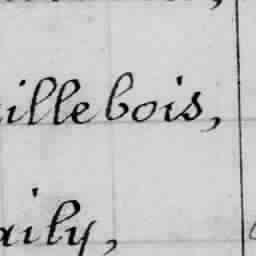 illebois,
aily,